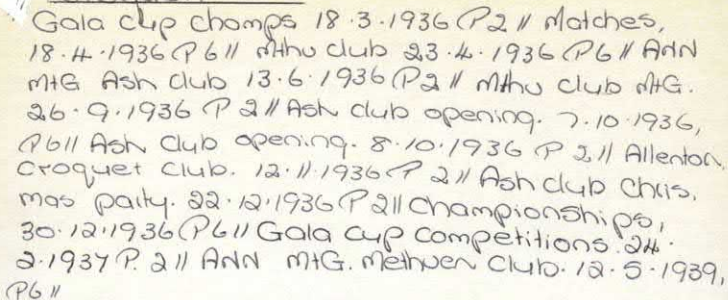 Gala cup champs 18.3.1936 P2 // Matches,
18.4.1936 P6 // Mthv club 23.4.1936 P6 // ANN
MtG Ash club 13.6.1936 P2 // Mthv club MtG.
26.9.1936 P 2 // Ash club opening. 7.10.1936,
P6 // Ash club opening. 8.10.1936 P 2 // Allenton
Croquet Club. 12.11.1936 P 2 // Ash club Chris,
mas party. 22.12.1936 P 2 // Championships,
30.12.1936 P6 // Gala cup competitions. 24.
2.1937 P. 2 // ANN MtG. Methven Club. 12.5.1939,
P6 //